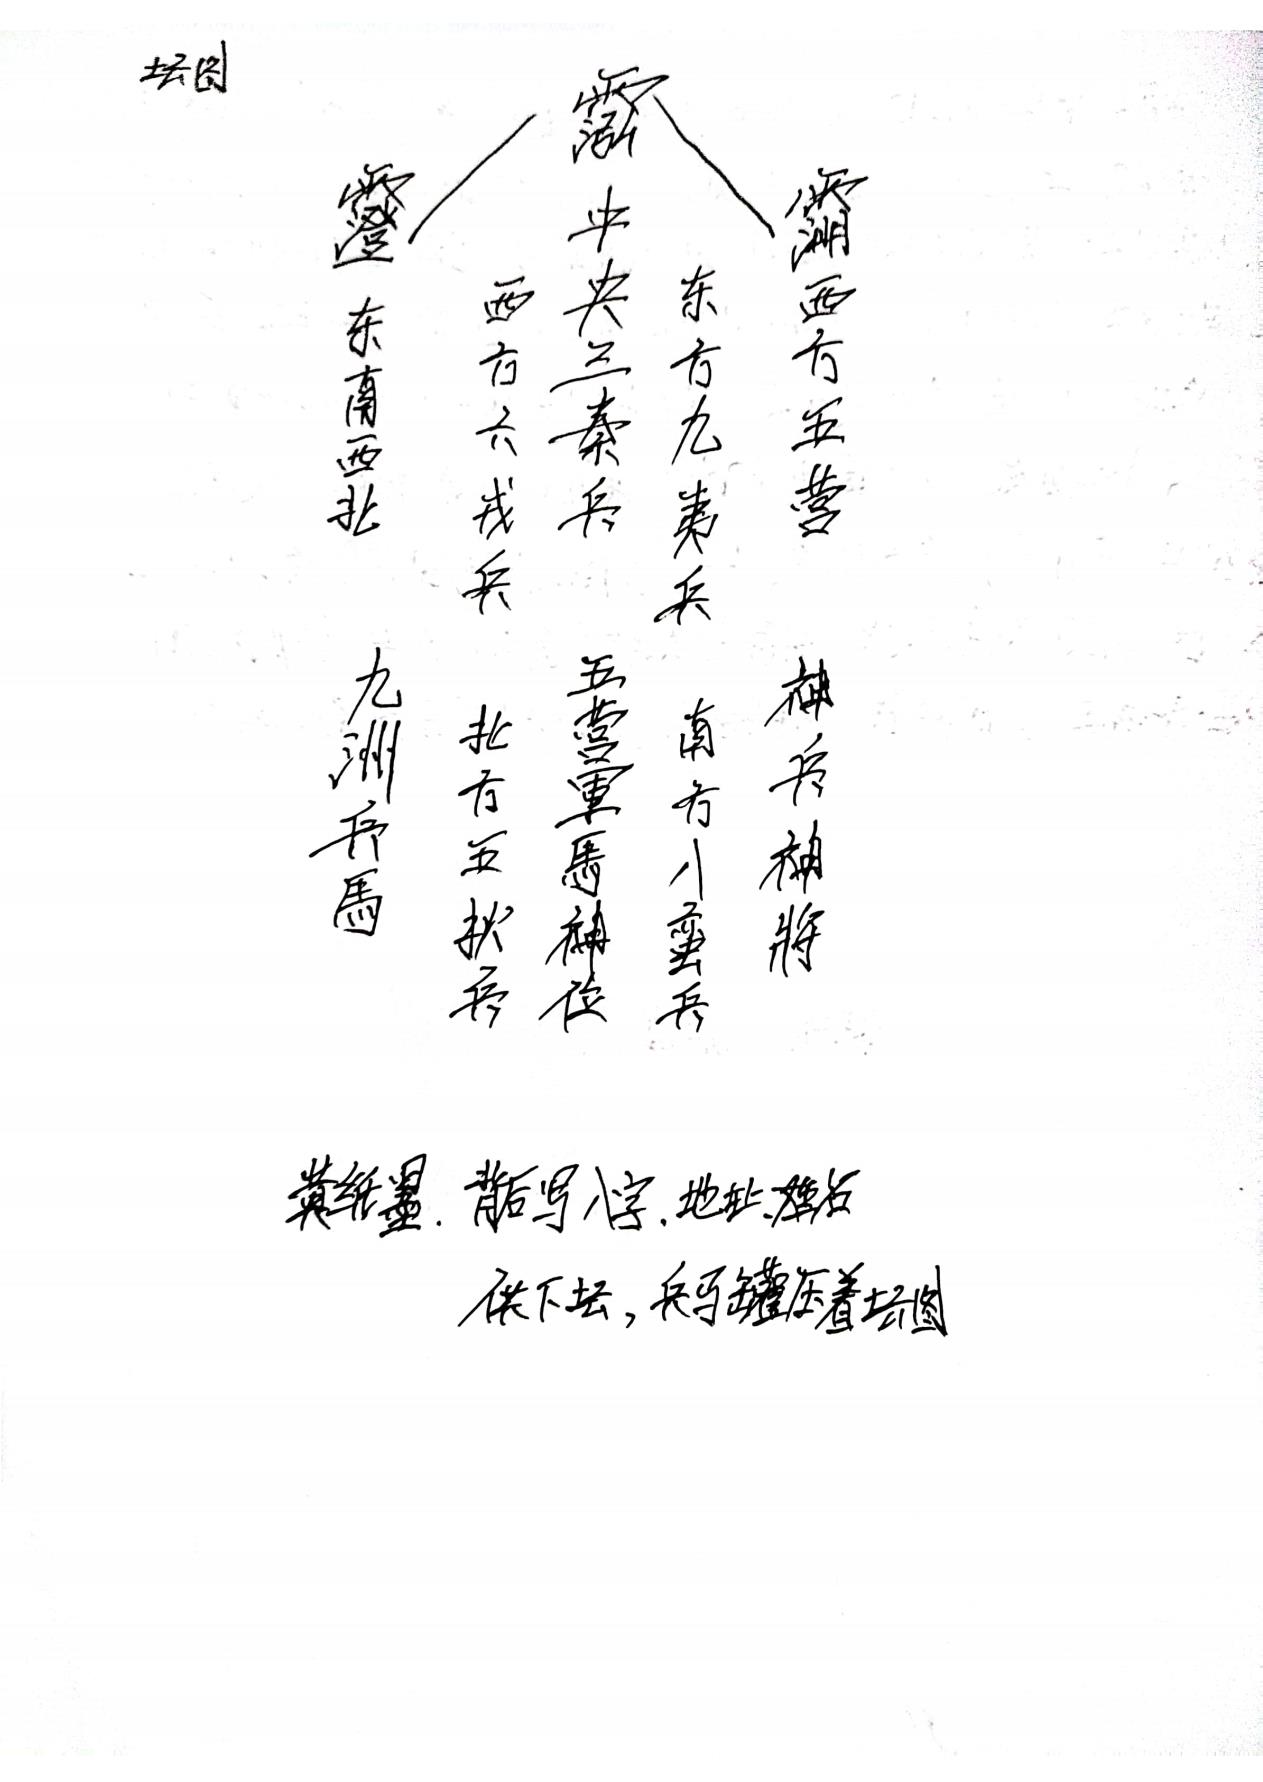 坛图
西方五营
神兵神將
东方九夷兵
南方八蛮兵
中央三秦兵
五营軍馬神位
西方六戎兵
北方五狄兵
东南西北
九洲兵馬
黄纸墨.背后写八字.地址.姓名
供下坛,兵马罐压着坛图